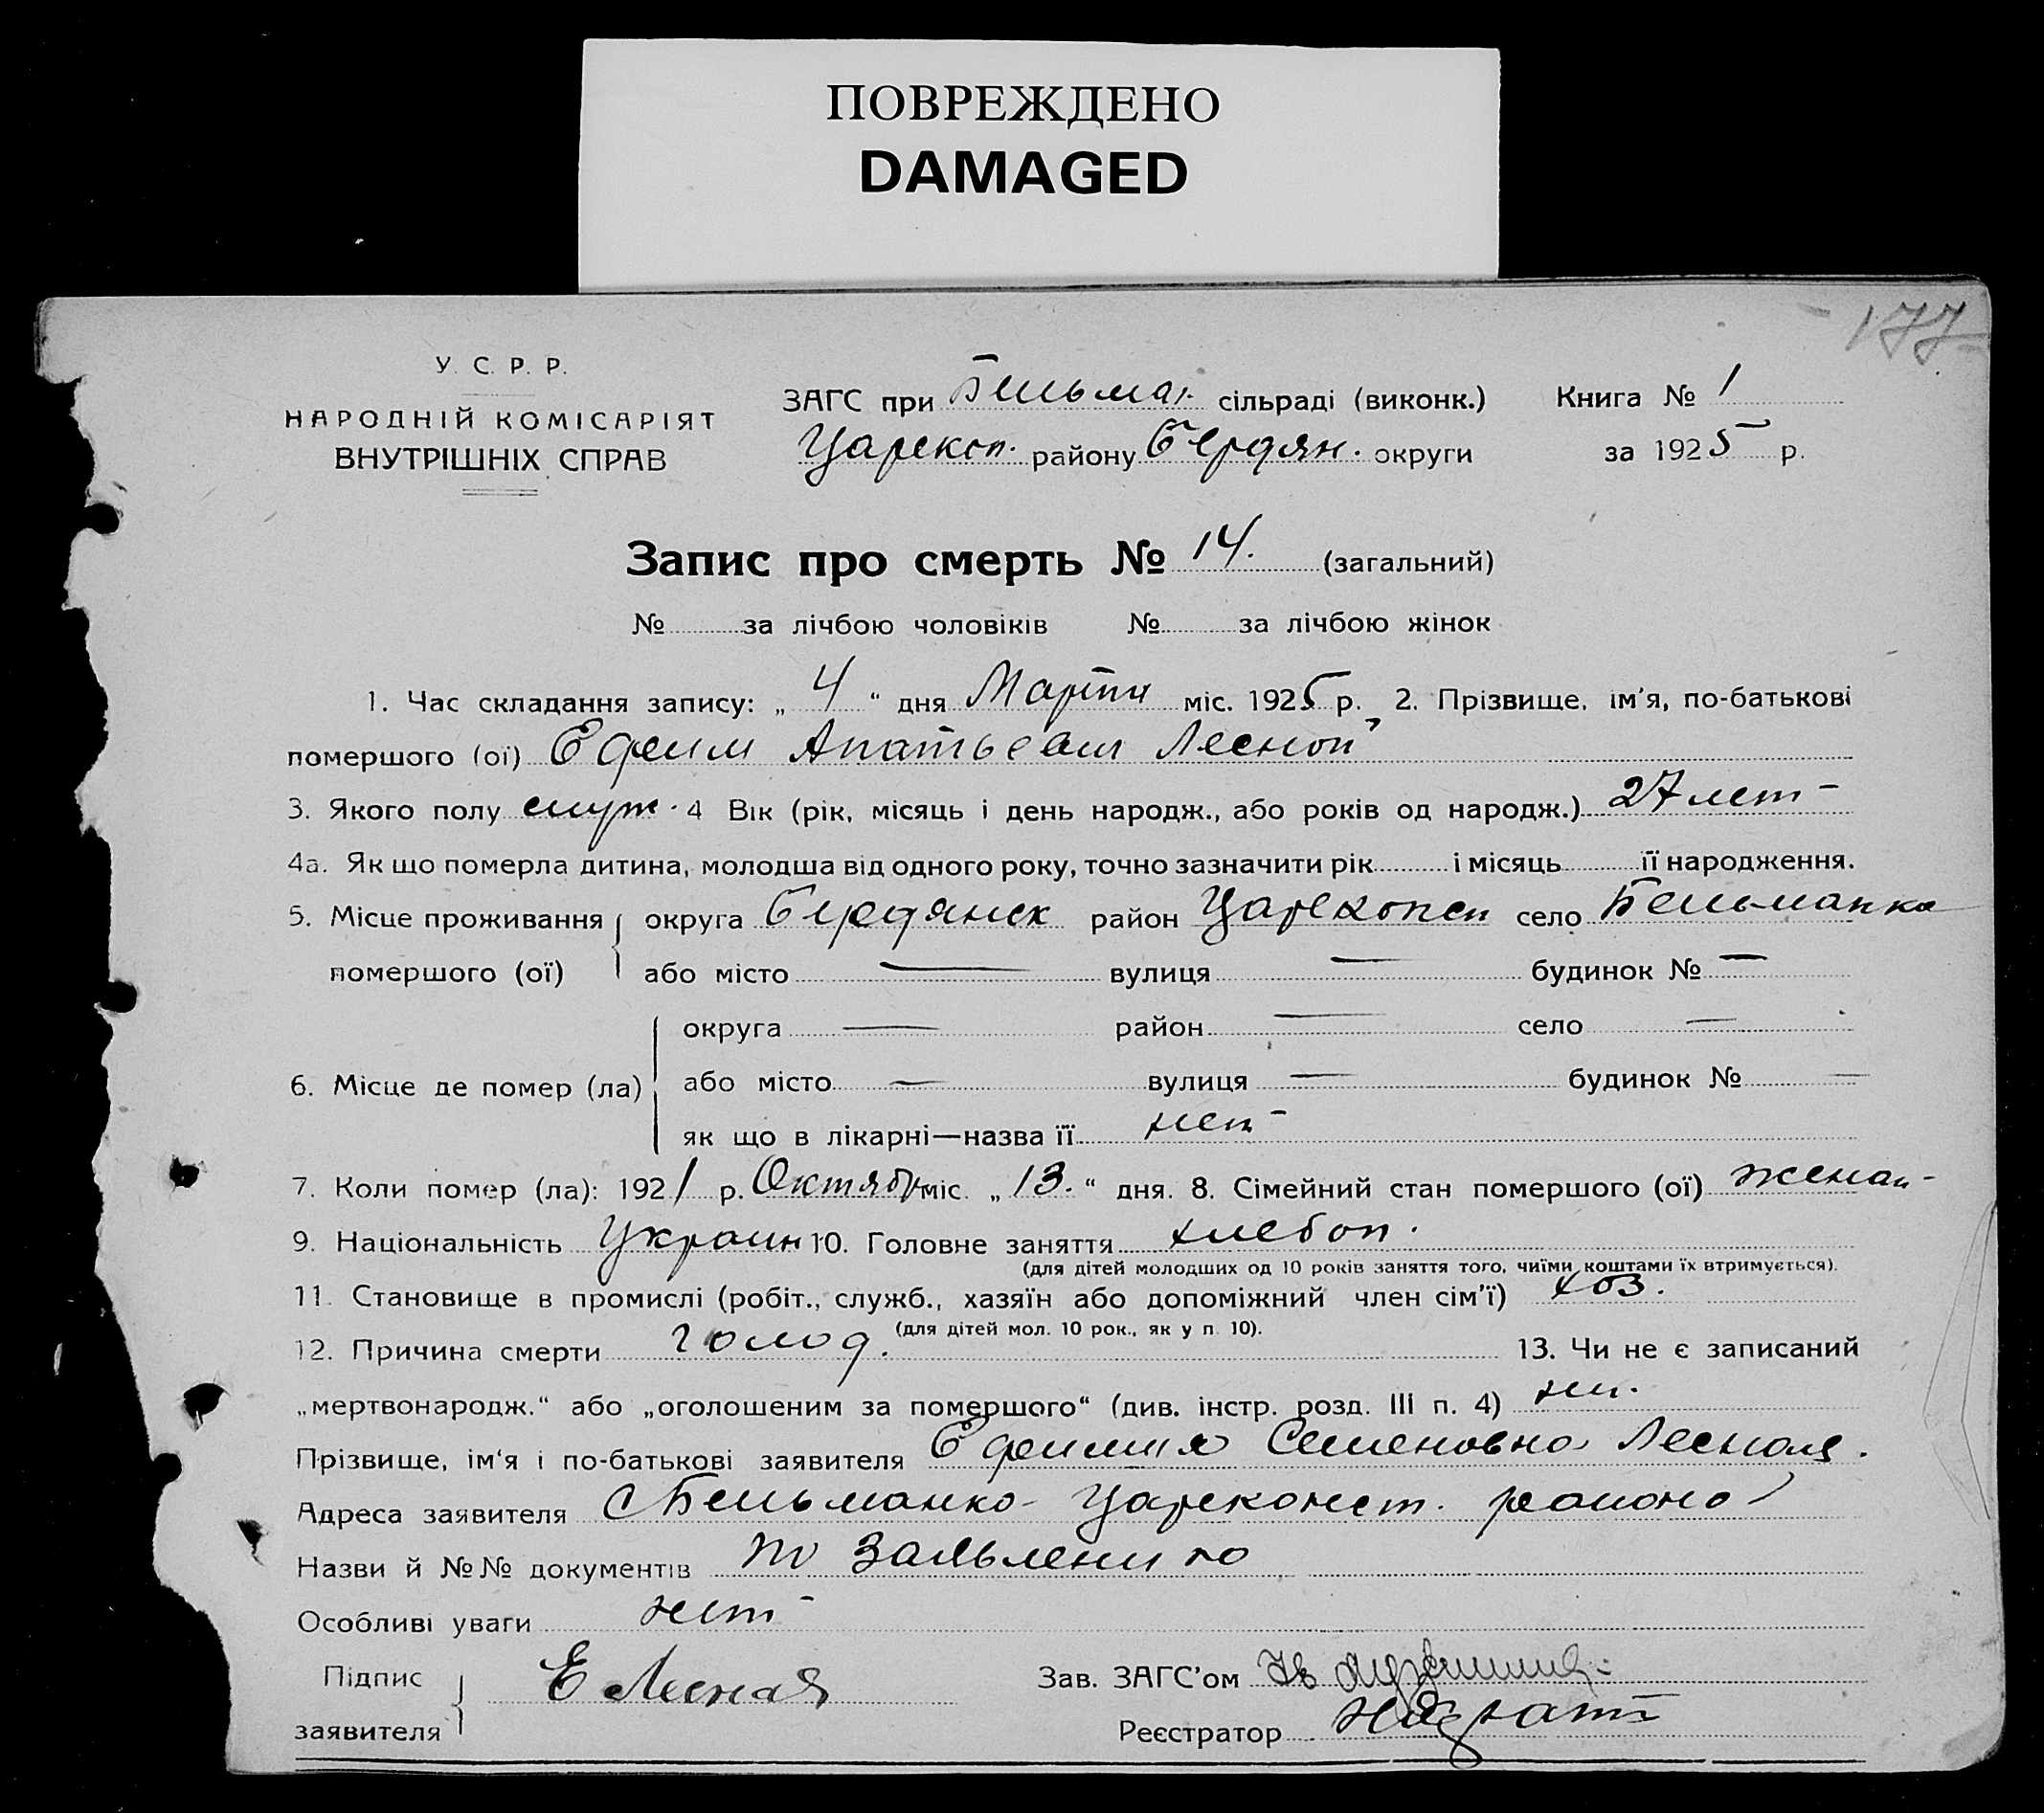 ПОВРЕЖДЕНО
DAMAGED
177
У. С. Р. Р.
НАРОДНІЙ КОМІСАРІЯТ
ВНУТРІШНІХ СПРАВ
ЗАГС при Бельман. сільраді (виконк.) Книга № 1
Царекон. району Бердян. округи за 1925 р.
Запис про смерть № 14. (загальний)
№ за лічбою чоловіків № за лічбою жінок
1. Час складання запису: „4“ дня Марта міс. 1925 р. 2. Прізвище, ім'я, по-батькові
помершого (ої) Ефим Лесной
3. Якого полу муж. 4 Вік (рік, місяць і день народж., або років од народж.) 27 лет
4а. Як що померла дитина, молодша від одного року, точно зазначити рік і місяць її народження.
5. Місце проживання округа Бердянск район Цареконст село Бельманка
помершого (ої) або місто — вулиця — будинок № —
округа — район — село —
6. Місце де помер (ла) або місто — вулиця — будинок № —
як що в лікарні—назва її нет
7. Коли помер (ла): 1921 р. Октябр міс. „13.“ дня. 8. Сімейний стан помершого (ої) женат
9. Національність Украин 10. Головне заняття хлебоп.
(для дітей молодших од 10 років заняття того, чиїми коштами їх втримується).
11. Становище в промислі (робіт., служб., хазяїн або допоміжний член сім'ї) хоз.
(для дітей мол. 10 рок., як у п. 10).
12. Причина смерти голод. 13. Чи не є записаний
„мертвонародж.“ або „оголошеним за помершого“ (див. інстр. розд. III п. 4) нет.
Прізвище, ім'я і по-батькові заявителя Ефимия Семеновна Лесная.
Адреса заявителя с Бельманка Цареконст. района
Назви й №№ документів по заявлению
Особливі уваги нет
Підпис
заявителя Е Лесная
Зав. ЗАГС'ом
Реєстратор